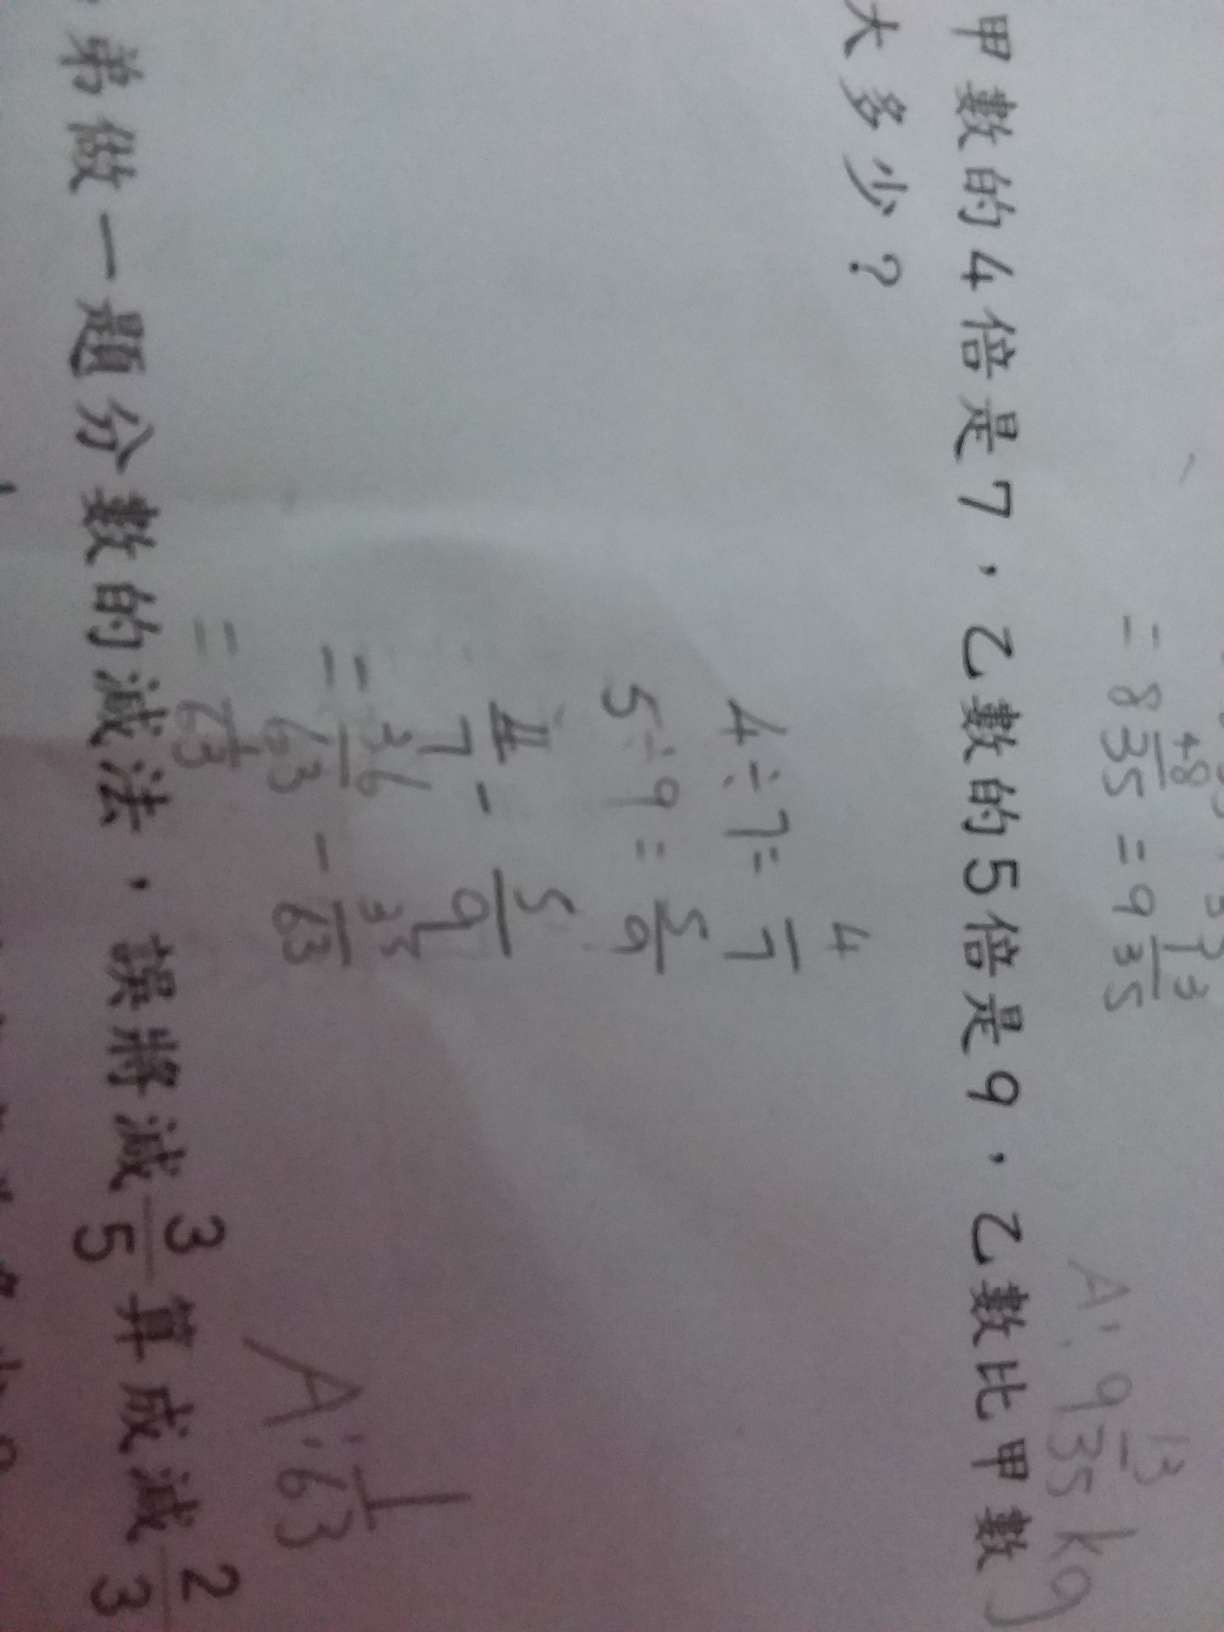 = 8 48/35 = 9 13/35
A: 9 13/35 kg
甲數的4倍是7，乙數的5倍是9，乙數比甲數
大多少？
4÷7= 4/7
5÷9= 5/9
4/7 - 5/9
= 36/63 - 35/63
= 1/63
A: 1/63
弟做一題分數的減法，誤將減 3/5 算成減 2/3